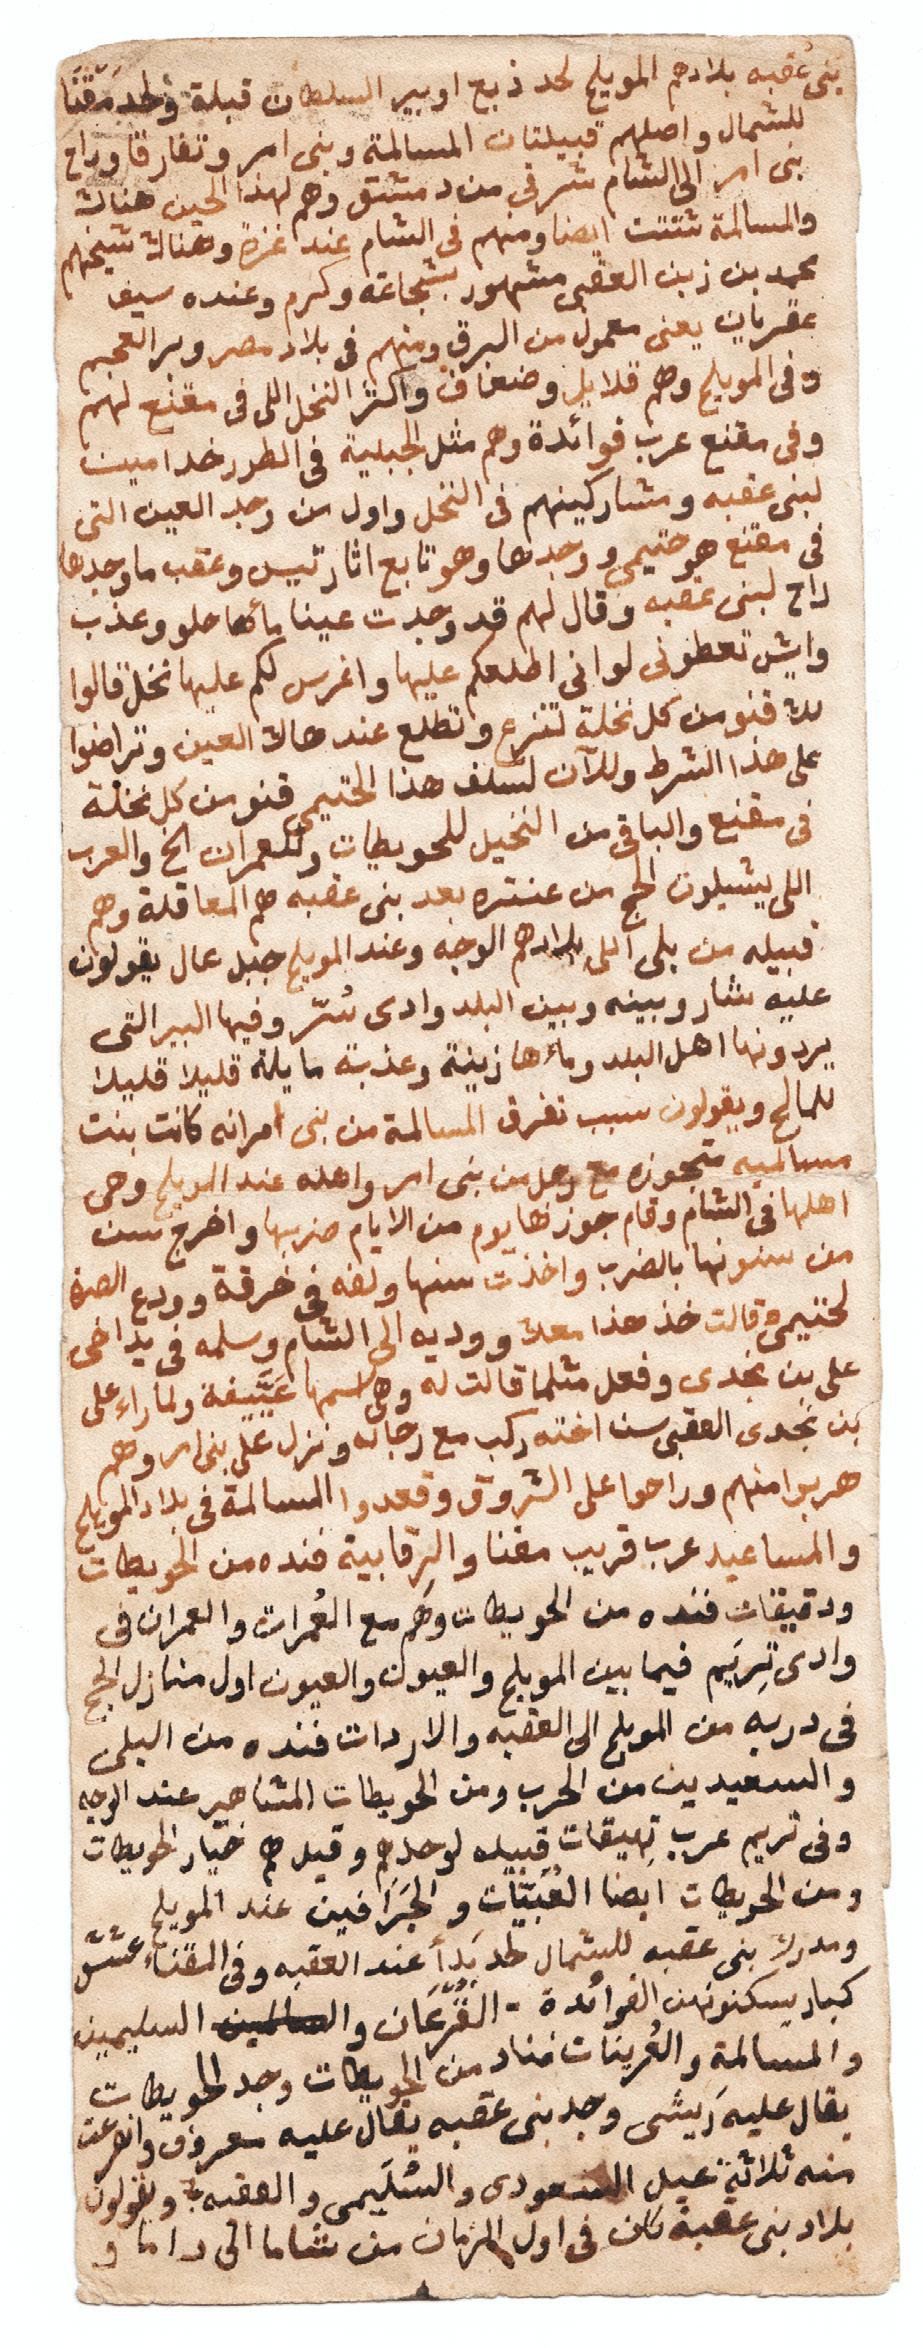 بنى عُقبه بلادهم المويلح لحد ذبع او بير السلطان قبلة ولحد مَقْنَا
للشمال واصلهم قبيلتان المسالمة وبنى امر وتفارقا وراح
بنى امر الى الشام شرقى من دمشق وهم لهذا الحين هناك
والمسالمة شتتت ايضا ومنهم فى الشام عند غزة وهناك شيخهم
محمد بن زبن العقبى مشهور بشجاعة وكرم وعنده سيف
عقربان يعنى معمول من البرق ومنهم فى بلاد مصر وبر العجم
وفى المويلح وهم قلايل وضعاف واكثر النخل اللى فى مقنع لهم
وفى مقنع عرب فوائدة وهم مثل الجبلية فى الطور خدامين
لبنى عقبه ومشاركينهم فى النخل واول من وجد العين التى
فى مقنع هو حتيمي ووجدها وهو تابع اثار تيس وعقب ما وجدها
راح لبنى عقبه وقال لهم قد وجدت عينا مأها حلو وعذب
وايش تعطونى لو انى اطلعكم عليها واغرس لكم عليها نخل قالوا
لك قنو من كل نخلة تنزع وتطلع عند هاك العين وتراضوا
على هذا الشرط وللآن لسلف هذا الحتيمى قنو من كل نخلة
فى مقنع والباقى من النخيل للحويطات وللعمران الخ والعرب
اللى يشيلون الحج من عنتره بعد بنى عقبه هم المعاقلة وهم
قبيله من بلى اللى بلادهم الوجه وعند المويلح جبل عال يقولون
عليه شار وبينه وبين البلد وادى سُرّ وفيها البير التى
يردونها اهل البلد وماءها زينة وعذبة مايلة قليلا قليلا
للمالح ويقولون سبب تفرق المسالمة من بنى امر انه كانت بنت
مسالميه متجوزه مع رجل من بنى امر واهله عند المويلح وحى
اهلها فى الشام وقام جوزها يوم من الايام ضربها واخرج سن
من سنونها بالضرب واخذت سنها ولفه فى خرقة وودع الصرة
لحتيمى وقالت خذ هذا معك ووديه الى الشام وسلمه فى يد اخى
على بن نجدى وفعل مثلما قالت له وهى اسمها عَيَّيفة ولما راء على
بن نَجدى العقبى سن اخته ركب مع رجاله ونزل على بنى امر وهم
هربوا منهم وراحوا على الشروق وقعدوا المسالمة فى بلاد المويلح
والمساعيد عرب قريب مقنا والرقابية فنده من الحويطات
ودقيقات فنده من الحويطات وهَم مع العُمران والعمران فى
وادى تِرِيَم فيما بين المويلح والعيون والعيون اول منازل الحج
فى دربه من المويلح الى العقبه والاردات فنده من البلى
والسعيدين من الحرب ومن الحويطات المشاهير عند الوجه
وفى تريم عرب تهيقات قبيله لوحدهم وقيل هم خيار الحويطات
ومن الحويطات ايضا العُبَيَّات والجَرَافين عند المويلح
ومدرك بنى عقبه للشمال لحد بَدأ عند العقبه وفى المقناء عشش
كبار يسكنونهن الفوائدة - القُرَعَان والسالمين السليمين
والمسالمة والغُرينات فناد من الحويطات وجد الحويطات
يقال عليه رَيشى وجد بنى عقبه يقال عليه معروف وانفرعت
منه ثلاثة عيل السعودى والسُلَيمى والعقبه ويقولون
بلاد بنى عقبة كان فى اول الزمان من شاما الى داما و